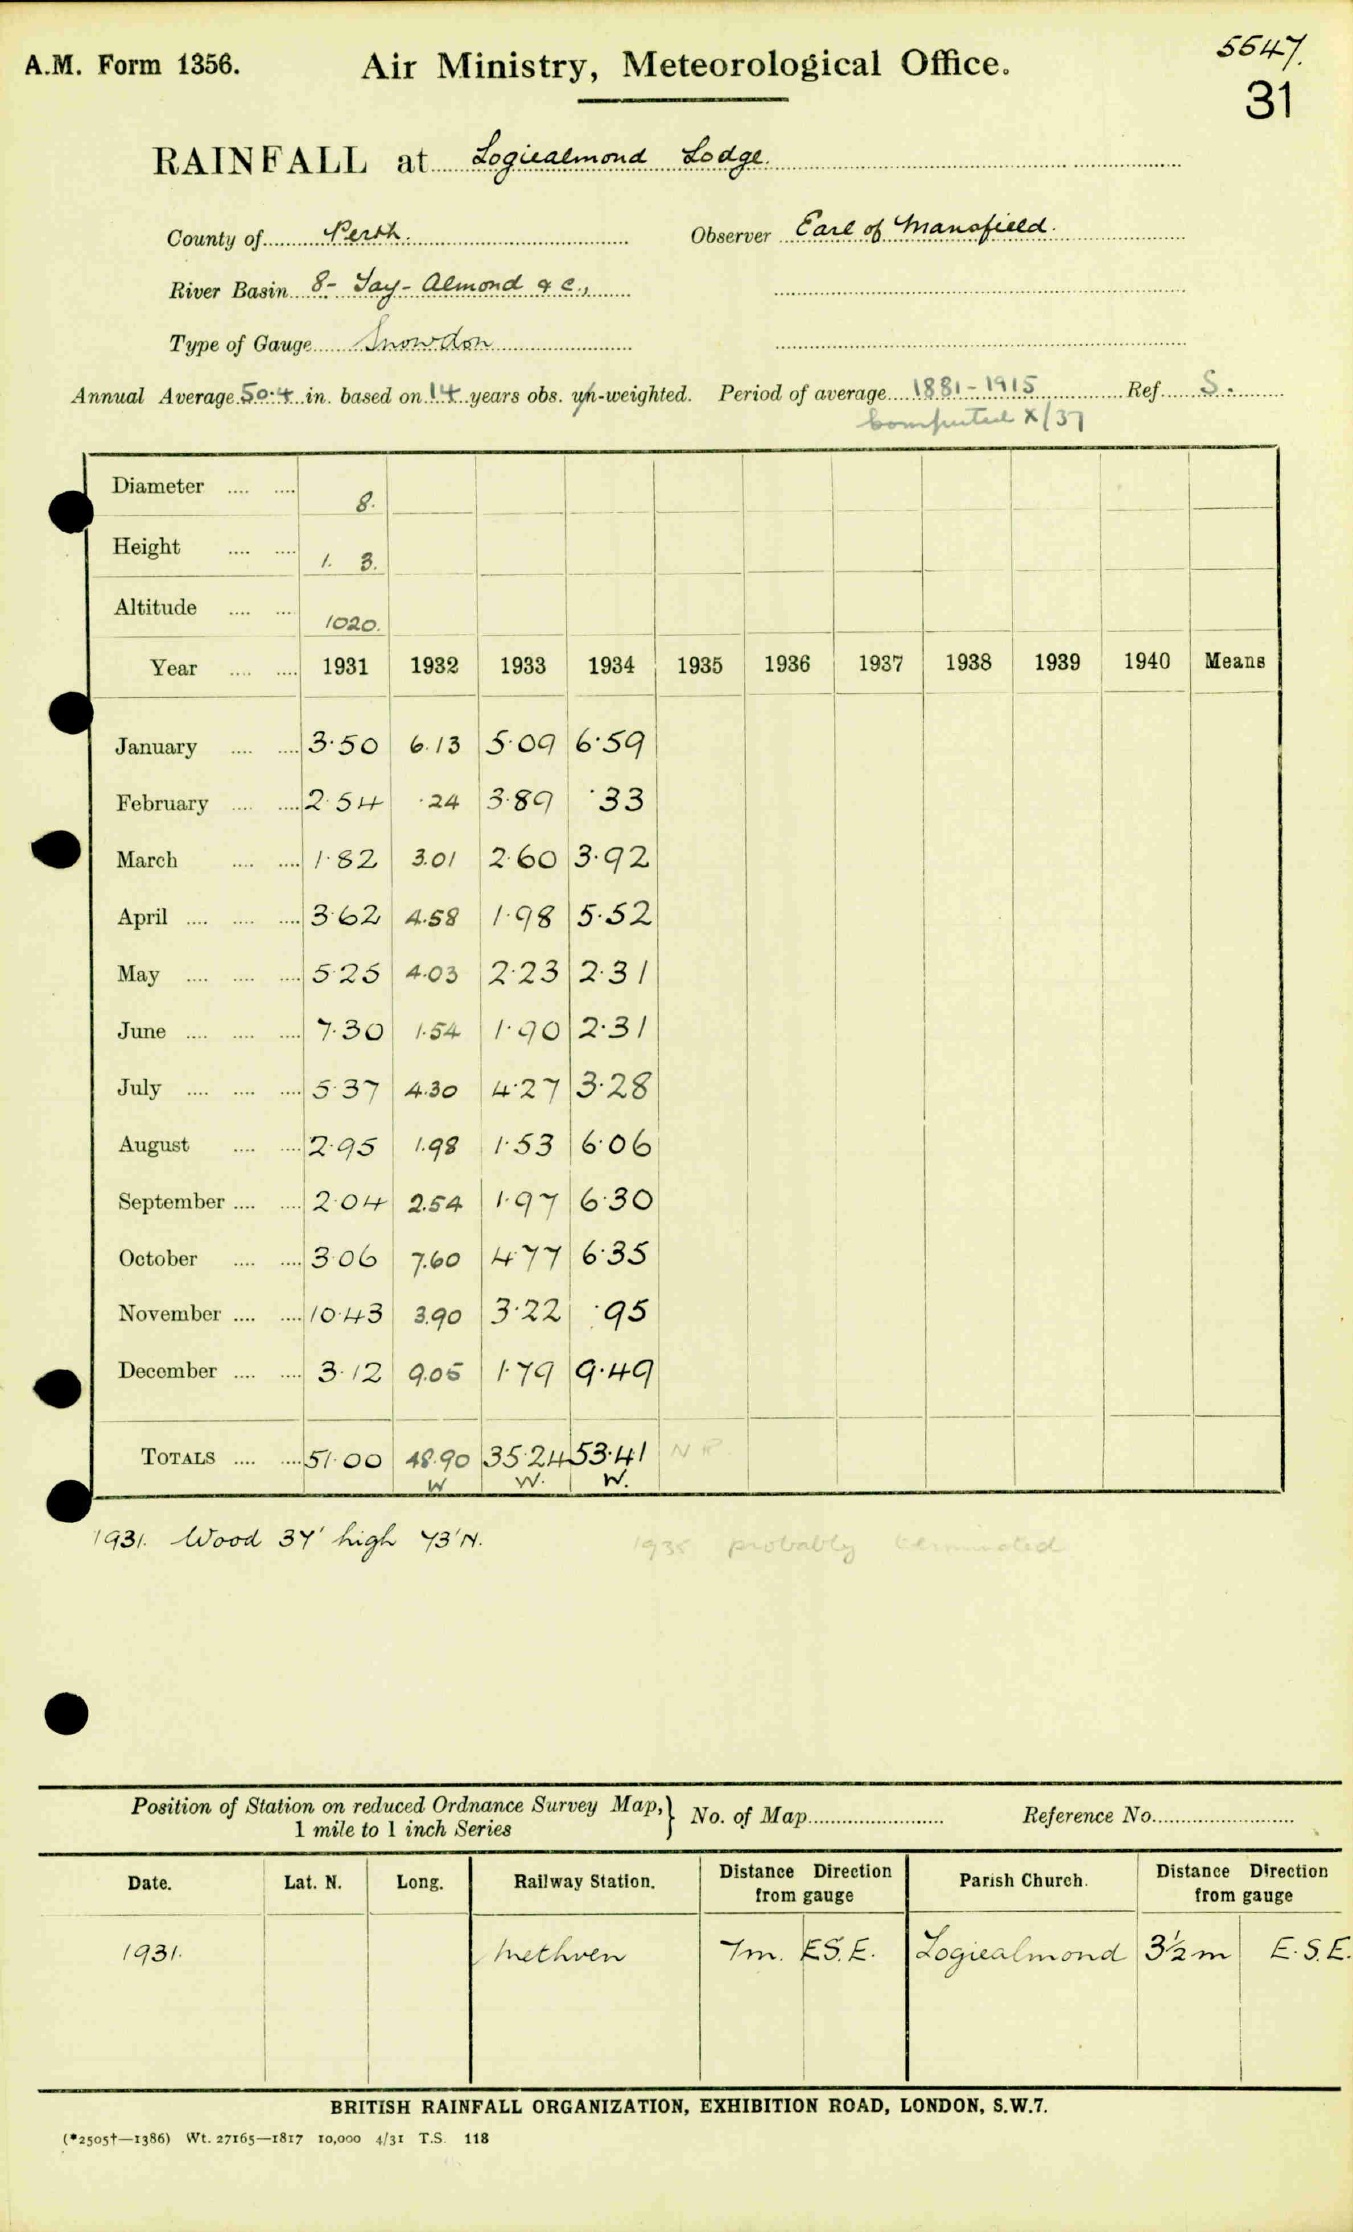 A.M. Form 1356.
Air Ministry, Meteorological Office.
5547.
31
RAINFALL at Logiealmond Lodge.
County of Perth. Observer Earl of Mansfield.
River Basin 8- Tay- Almond & c.,
Type of Gauge Snowdon
Annual Average 50.4 in. based on 14 years obs. un-weighted. Period of average 1881-1915 Ref. S.
Computed X/37
Diameter .... .... 8.
Height .... .... 1. 3.
Altitude .... .... 1020.
Year .... .... 1931 1932 1933 1934 1935 1936 1937 1938 1939 1940 Means
January .... .... 3.50 6.13 5.09 6.59
February .... .... 2.54 .24 3.89 .33
March .... .... 1.82 3.01 2.60 3.92
April .... .... .... 3.62 4.58 1.98 5.52
May .... .... .... 5.25 4.03 2.23 2.31
June .... .... .... 7.30 1.54 1.90 2.31
July .... .... .... 5.37 4.30 4.27 3.28
August .... .... 2.95 1.98 1.53 6.06
September .... .... 2.04 2.54 1.97 6.30
October .... .... 3.06 7.60 4.77 6.35
November .... .... 10.43 3.90 3.22 .95
December .... .... 3.12 9.05 1.79 9.49
TOTALS .... .... 51.00 48.90 35.24 53.41 N R.
W W. W.
1931. Wood 37' high 73' N. 1935 probably terminated
Position of Station on reduced Ordnance Survey Map, } No. of Map Reference No.
1 mile to 1 inch Series
Date. Lat. N. Long. Railway Station. Distance Direction from gauge Parish Church. Distance Direction from gauge
1931. Methven 7m. E.S.E. Logiealmond 3½m E.S.E.
BRITISH RAINFALL ORGANIZATION, EXHIBITION ROAD, LONDON, S.W.7.
(*2505†—1386) Wt. 27165—1817 10,000 4/31 T.S. 118